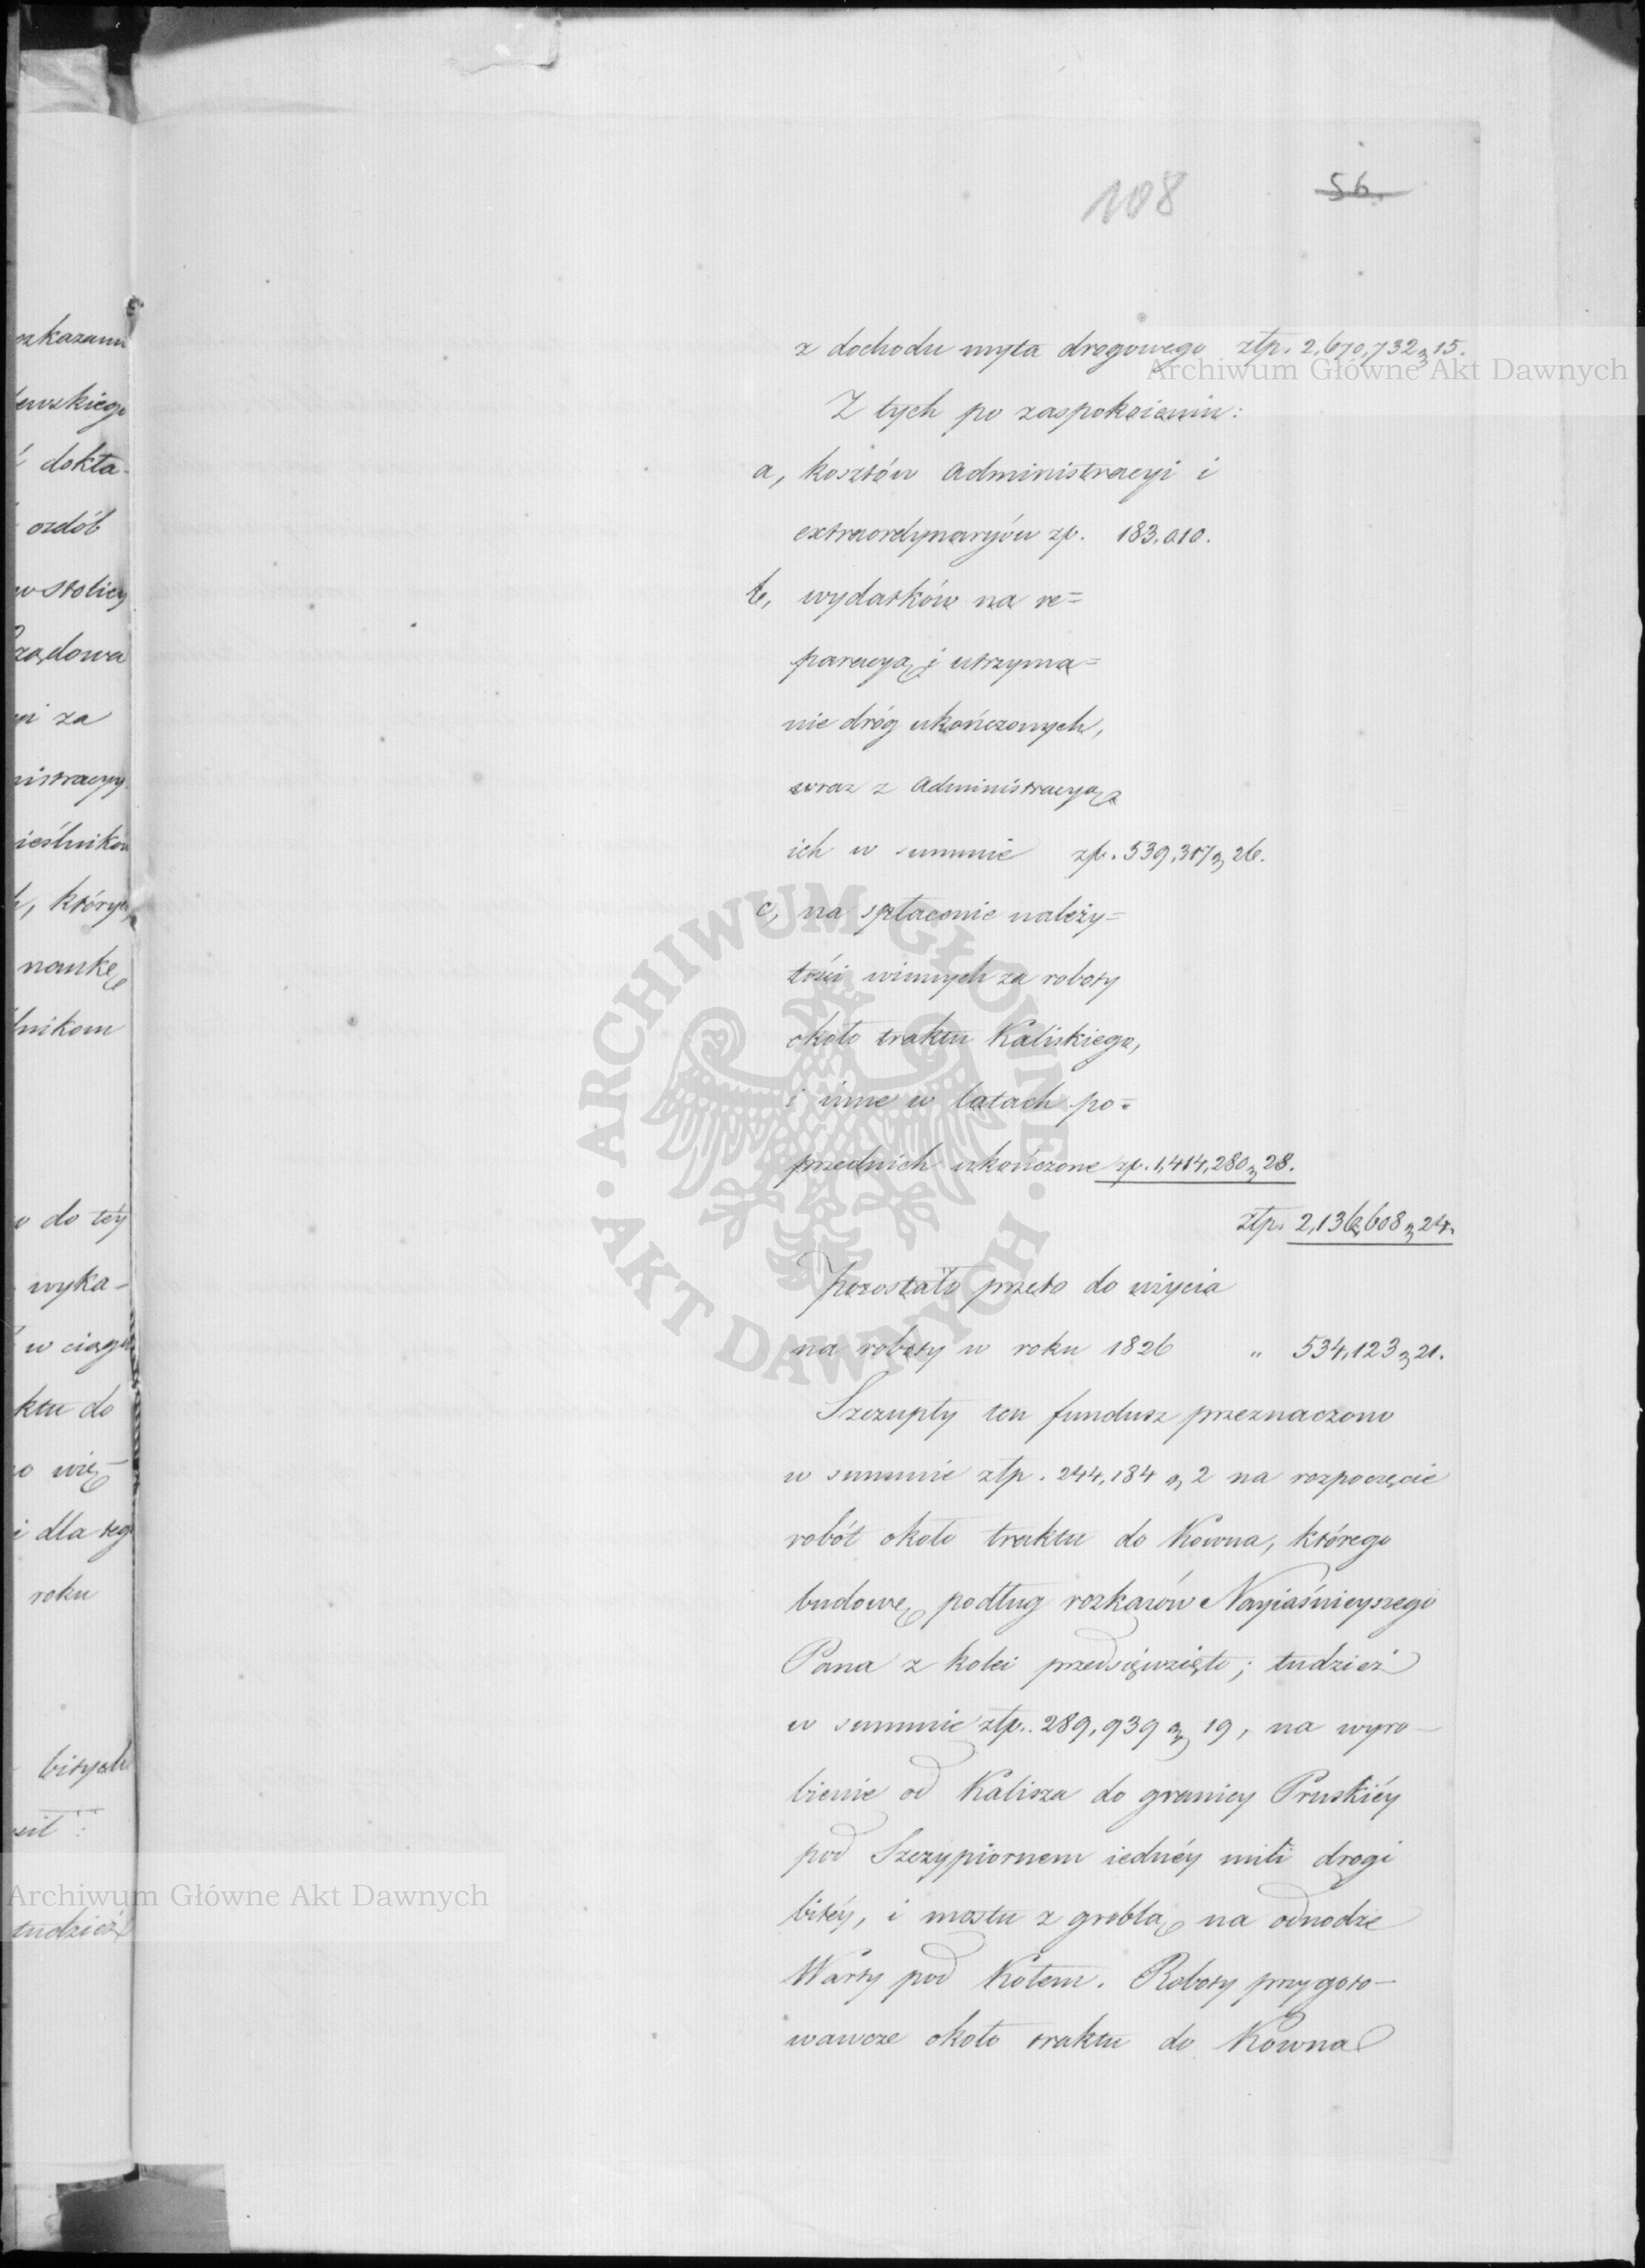 ozkazami
ewskiego
dokła-
ozdób
w stolicy
Rządowa
yi za
nistracyy
ieślników
h, których
naukę
lnikom
w do tey
wyka-
w ciągu
ktu do
o wię-
i dla tego
roku
bitych
sił :
tudzież
108
56.
z dochodu myta drogowego złp. 2,670,732 gr 15.
Z tych po zaspokoieniu:
a, kosztów Administracyi i
extraordynaryów zp. 183.010.
b, wydatków na re=
paracyą i utrzyma=
nie dróg ukończonych,
wraz z Administracyą
ich w summie zp. 539,317 gr 26.
c, na spłacenie należy=
tości winnych za roboty
około traktu Kaliskiego,
i inne w latach po=
przednich ukończone zp. 1,414,280 gr 28.
złp. 2,136,608 gr 24.
Pozostało przeto do użycia
na roboty w roku 1826 „ 534,123 gr 21.
Szczupły ten fundusz przeznaczono
w summie złp. 244,184 gr 2 na rozpoczęcie
robót około traktu do Kowna, którego
budowę podług rozkazów Nayiaśnieyszego
Pana z kolei przedsięwzięto; tudzież
w summie złp. 289,939 gr 19, na wyro-
bienie od Kalisza do granicy Pruskiéy
pod Szczypiornem iednéy mili drogi
bitéy, i mostu z groblą na odnodze
Warty pod Kołem. Roboty przygoto-
wawcze około traktu do Kowna
Archiwum Główne Akt Dawnych
ARCHIWUM GŁÓWNE AKT DAWNYCH
Archiwum Główne Akt Dawnych